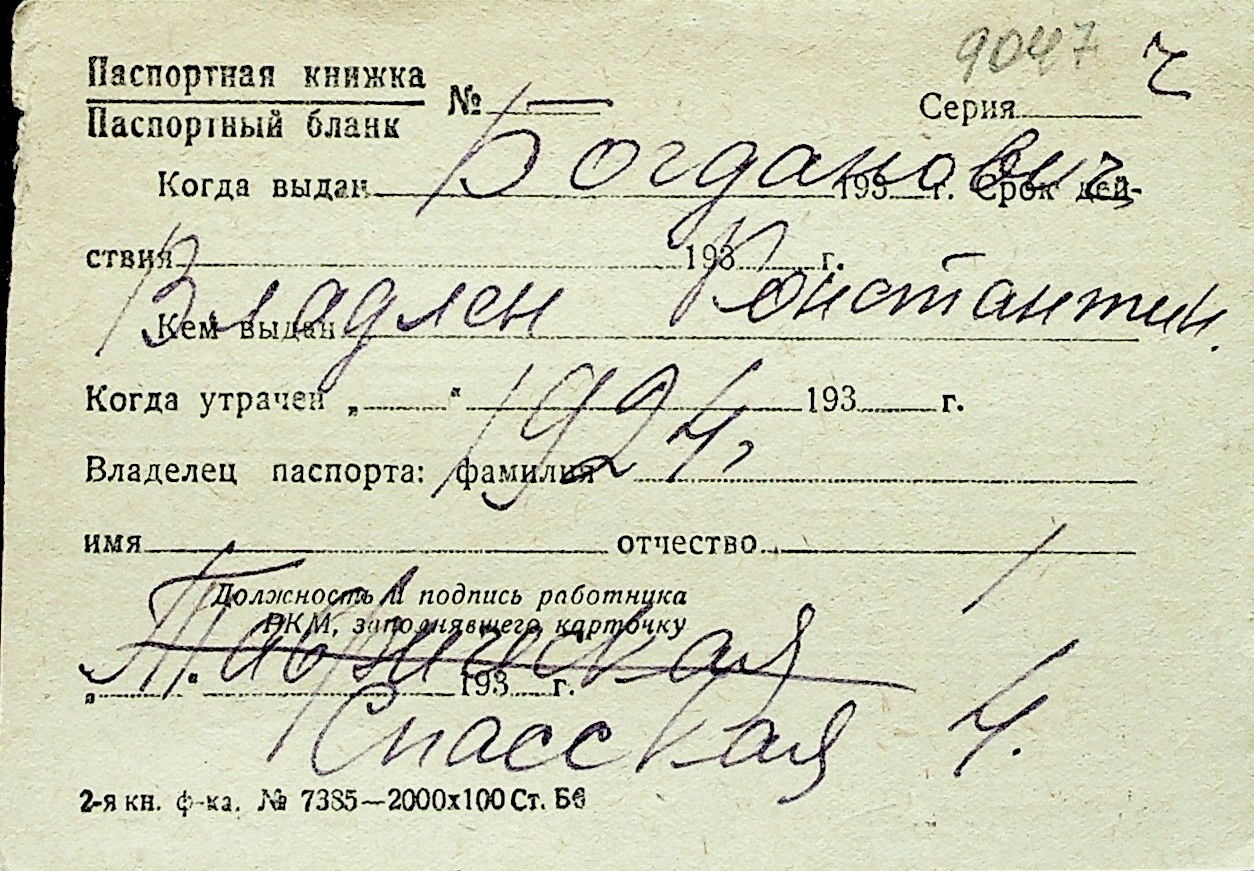 9047 ч
Паспортная книжка
Паспортный бланк № — Серия
Богданович
Когда выдан 193 г. Срок дей-
ствия 193 г.
Владлен Константин.
Кем выдан
Когда утрачен „ “ 193 г.
1924г
Владелец паспорта: фамилия
имя отчество
Должность и подпись работника
РКМ, заполнявшего карточку
Таврическая 1
„ “ 193 г.
Спасская 4.
2-я кн. ф-ка. № 7385—2000х100 Ст. Бб